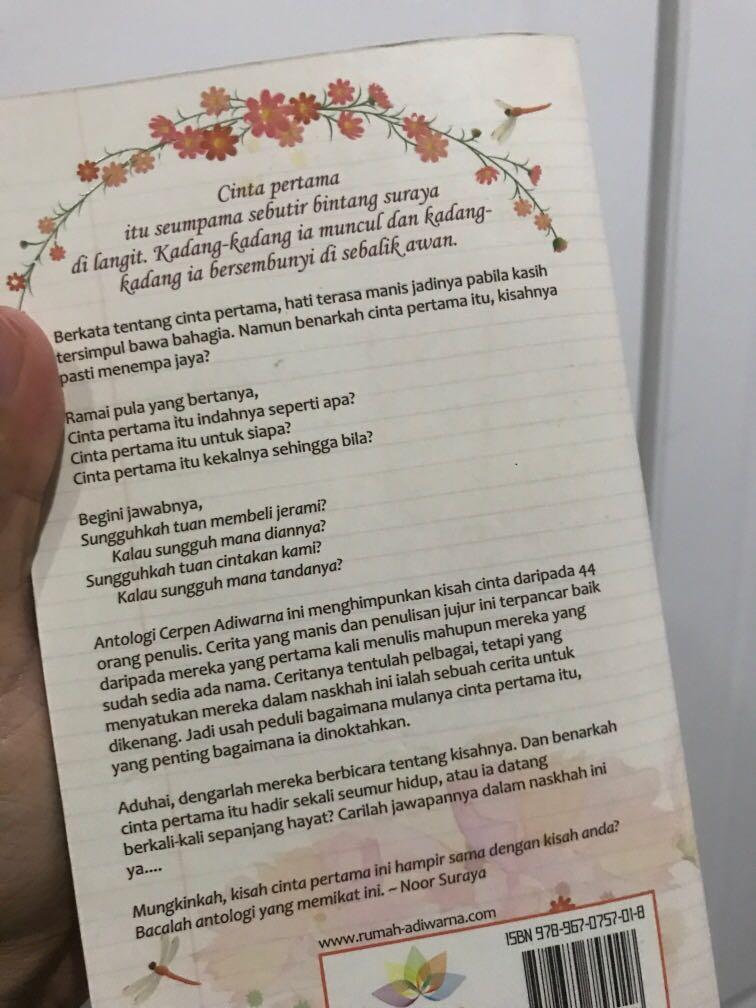 Cinta pertama
itu seumpama sebutir bintang suraya
di langit. Kadang-kadang ia muncul dan kadang-
kadang ia bersembunyi di sebalik awan.
Berkata tentang cinta pertama, hati terasa manis jadinya pabila kasih
tersimpul bawa bahagia. Namun benarkah cinta pertama itu, kisahnya
pasti menempa jaya?
Ramai pula yang bertanya,
Cinta pertama itu indahnya seperti apa?
Cinta pertama itu untuk siapa?
Cinta pertama itu kekalnya sehingga bila?
Begini jawabnya,
Sungguhkah tuan membeli jerami?
Kalau sungguh mana diannya?
Sungguhkah tuan cintakan kami?
Kalau sungguh mana tandanya?
Antologi Cerpen Adiwarna ini menghimpunkan kisah cinta daripada 44
orang penulis. Cerita yang manis dan penulisan jujur ini terpancar baik
daripada mereka yang pertama kali menulis mahupun mereka yang
sudah sedia ada nama. Ceritanya tentulah pelbagai, tetapi yang
menyatukan mereka dalam naskhah ini ialah sebuah cerita untuk
dikenang. Jadi usah peduli bagaimana mulanya cinta pertama itu,
yang penting bagaimana ia dinoktahkan.
Aduhai, dengarlah mereka berbicara tentang kisahnya. Dan benarkah
cinta pertama itu hadir sekali seumur hidup, atau ia datang
berkali-kali sepanjang hayat? Carilah jawapannya dalam naskhah ini
ya....
Mungkinkah, kisah cinta pertama ini hampir sama dengan kisah anda?
Bacalah antologi yang memikat ini. ~ Noor Suraya
www.rumah-adiwarna.com
ISBN 978-967-0757-01-8